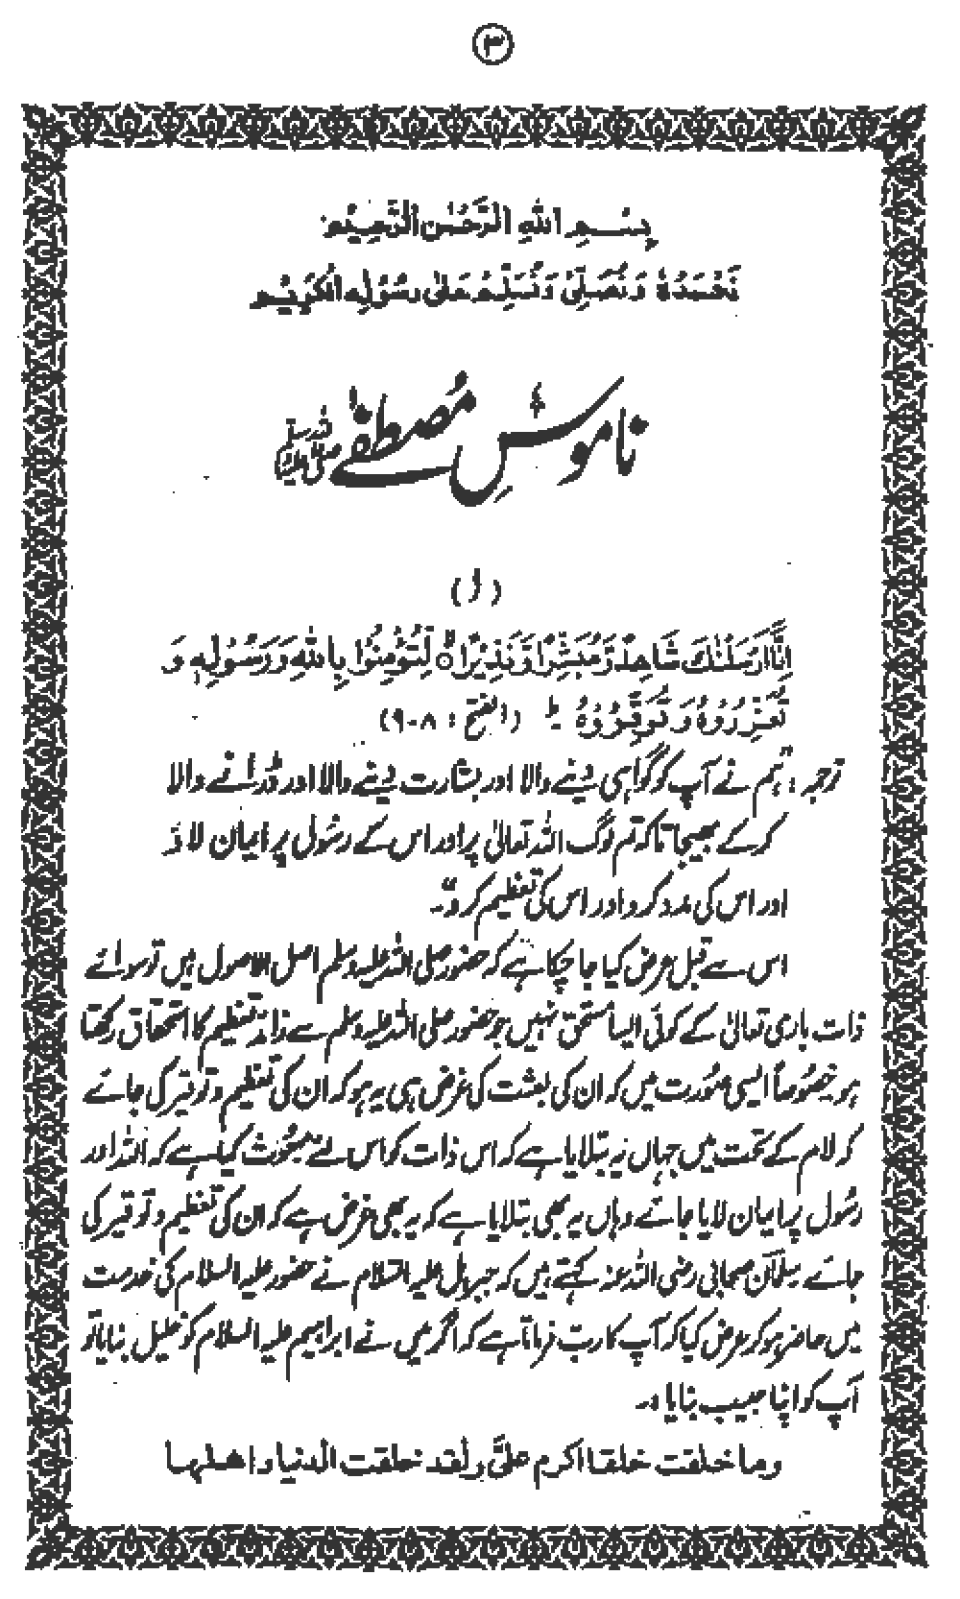 ۳
بِسْمِ اللهِ الرَّحْمٰنِ الرَّحِيْمِ
نَحْمَدُهٗ وَنُصَلِّیْ وَنُسَلِّمُ عَلٰی رَسُوْلِهِ الْکَرِیْمِ
ناموسِ مُصطفےٰ صلی اللہ علیہ وسلم
(۱)
اِنَّا اَرْسَلْنٰكَ شَاهِدًا وَّمُبَشِّرًا وَّنَذِیْرًا ۝ لِّتُؤْمِنُوْا بِاللهِ وَرَسُوْلِهٖ وَ
تُعَزِّرُوْهُ وَتُوَقِّرُوْهُ ط (الفتح : ۸-۹)
ترجمہ : "ہم نے آپ کو گواہی دینے والا اور بشارت دینے والا اور ڈرانے والا
کرکے بھیجا تاکہ تم لوگ اللہ تعالیٰ پر اور اس کے رسُول پر ایمان لاؤ
اور اس کی مدد کرو اور اس کی تعظیم کرو"۔
اس سے قبل عرض کیا جا چکا ہے کہ حضور صلی اللہ علیہ وسلم اصل الاصول ہیں تو سوائے
ذات باری تعالیٰ کے کوئی ایسا مستحق نہیں جو حضور صلی اللہ علیہ وسلم سے زائد تعظیم کا استحقاق رکھتا
ہو خصُوصاً ایسی صُورت میں کہ ان کی بعثت کی غرض ہی یہ ہو کہ ان کی تعظیم و توقیر کی جائے
کہ لام کے تحت میں جہاں یہ بتلایا ہے کہ اس ذات کو اس لئے مبعُوث کیا ہے کہ اللہ اور
رسُول پر ایمان لایا جائے وہاں یہ بھی بتلایا ہے کہ یہ بھی غرض ہے کہ ان کی تعظیم و توقیر کی
جائے سلمانؓ صحابی رضی اللہ عنہ کہتے ہیں کہ جبریل علیہ السّلام نے حضور علیہ السلام کی خدمت
میں حاضر ہو کر عرض کیا کہ آپ کا ربّ فرماتا ہے کہ اگر میں نے ابراہیم علیہ السلام کو خلیل بنایا تو
آپ کو اپنا حبیب بنایا ۔
وما خلقت خلقا اکرم علیَّ ولقد خلقت الدنیا واهلها